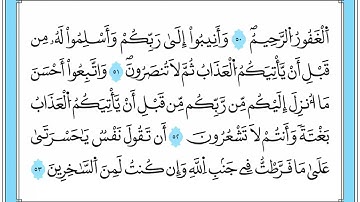 اَ۬لْغَفُورُ اُ۬لرَّحِيمُ ٥٠ وَأَنِيبُوٓاْ إِلَىٰ رَبِّكُمْ وَأَسْلِمُواْ لَهُۥ مِن
قَبْلِ أَنْ يَّأْتِيَكُمُ اُ۬لْعَذَابُ ثُمَّ لَا تُنصَرُونَ ٥١ وَاتَّبِعُوٓاْ أَحْسَنَ
مَآ أُنزِلَ إِلَيْكُم مِّن رَّبِّكُم مِّن قَبْلِ أَنْ يَّأْتِيَكُمُ اُ۬لْعَذَابُ
بَغْتَةً وَأَنتُمْ لَا تَشْعُرُونَ ٥٢ أَن تَقُولَ نَفْسٌ يَٰحَسْرَتَىٰ
عَلَىٰ مَا فَرَّطتُ فِي جَنۢبِ اِ۬للَّهِ وَإِن كُنتُ لَمِنَ اَ۬لسَّٰخِرِينَ ٥٣